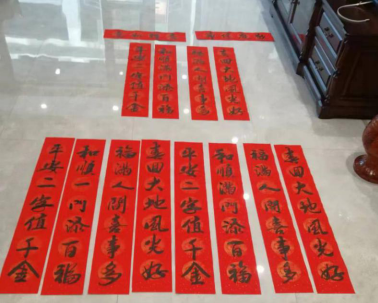 春回大地风光好
福满人间喜事多
和顺一门添百福
平安二字值千金
春回大地风光好
福满人间喜事多
和顺满门添百福
平安二字值千金
春回大地风光好
福满人间喜事多
和顺一门添百福
平安二字值千金